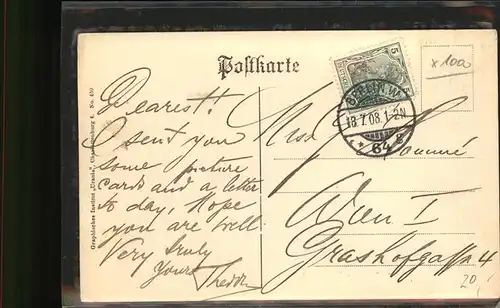 Postkarte
x 100
Dearest!!
I sent you
some picture
cards and a letter
to day, Hope
you are well
Very truly
Yours
Graphisches Institut „Urania“, Charlottenburg 4. No. 450
5
BERLIN W.
18.7.08.1-2N
* 64 g
Wien I
Grashofgasse 4
20,